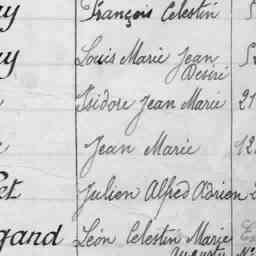 ay François Celestin
ay Louis Marie Jean
Désiré
Isidore Jean Marie 21
Jean Marie 12
et Julien Alfred Adrien 2
gand Léon Celestin Marie
Auguste